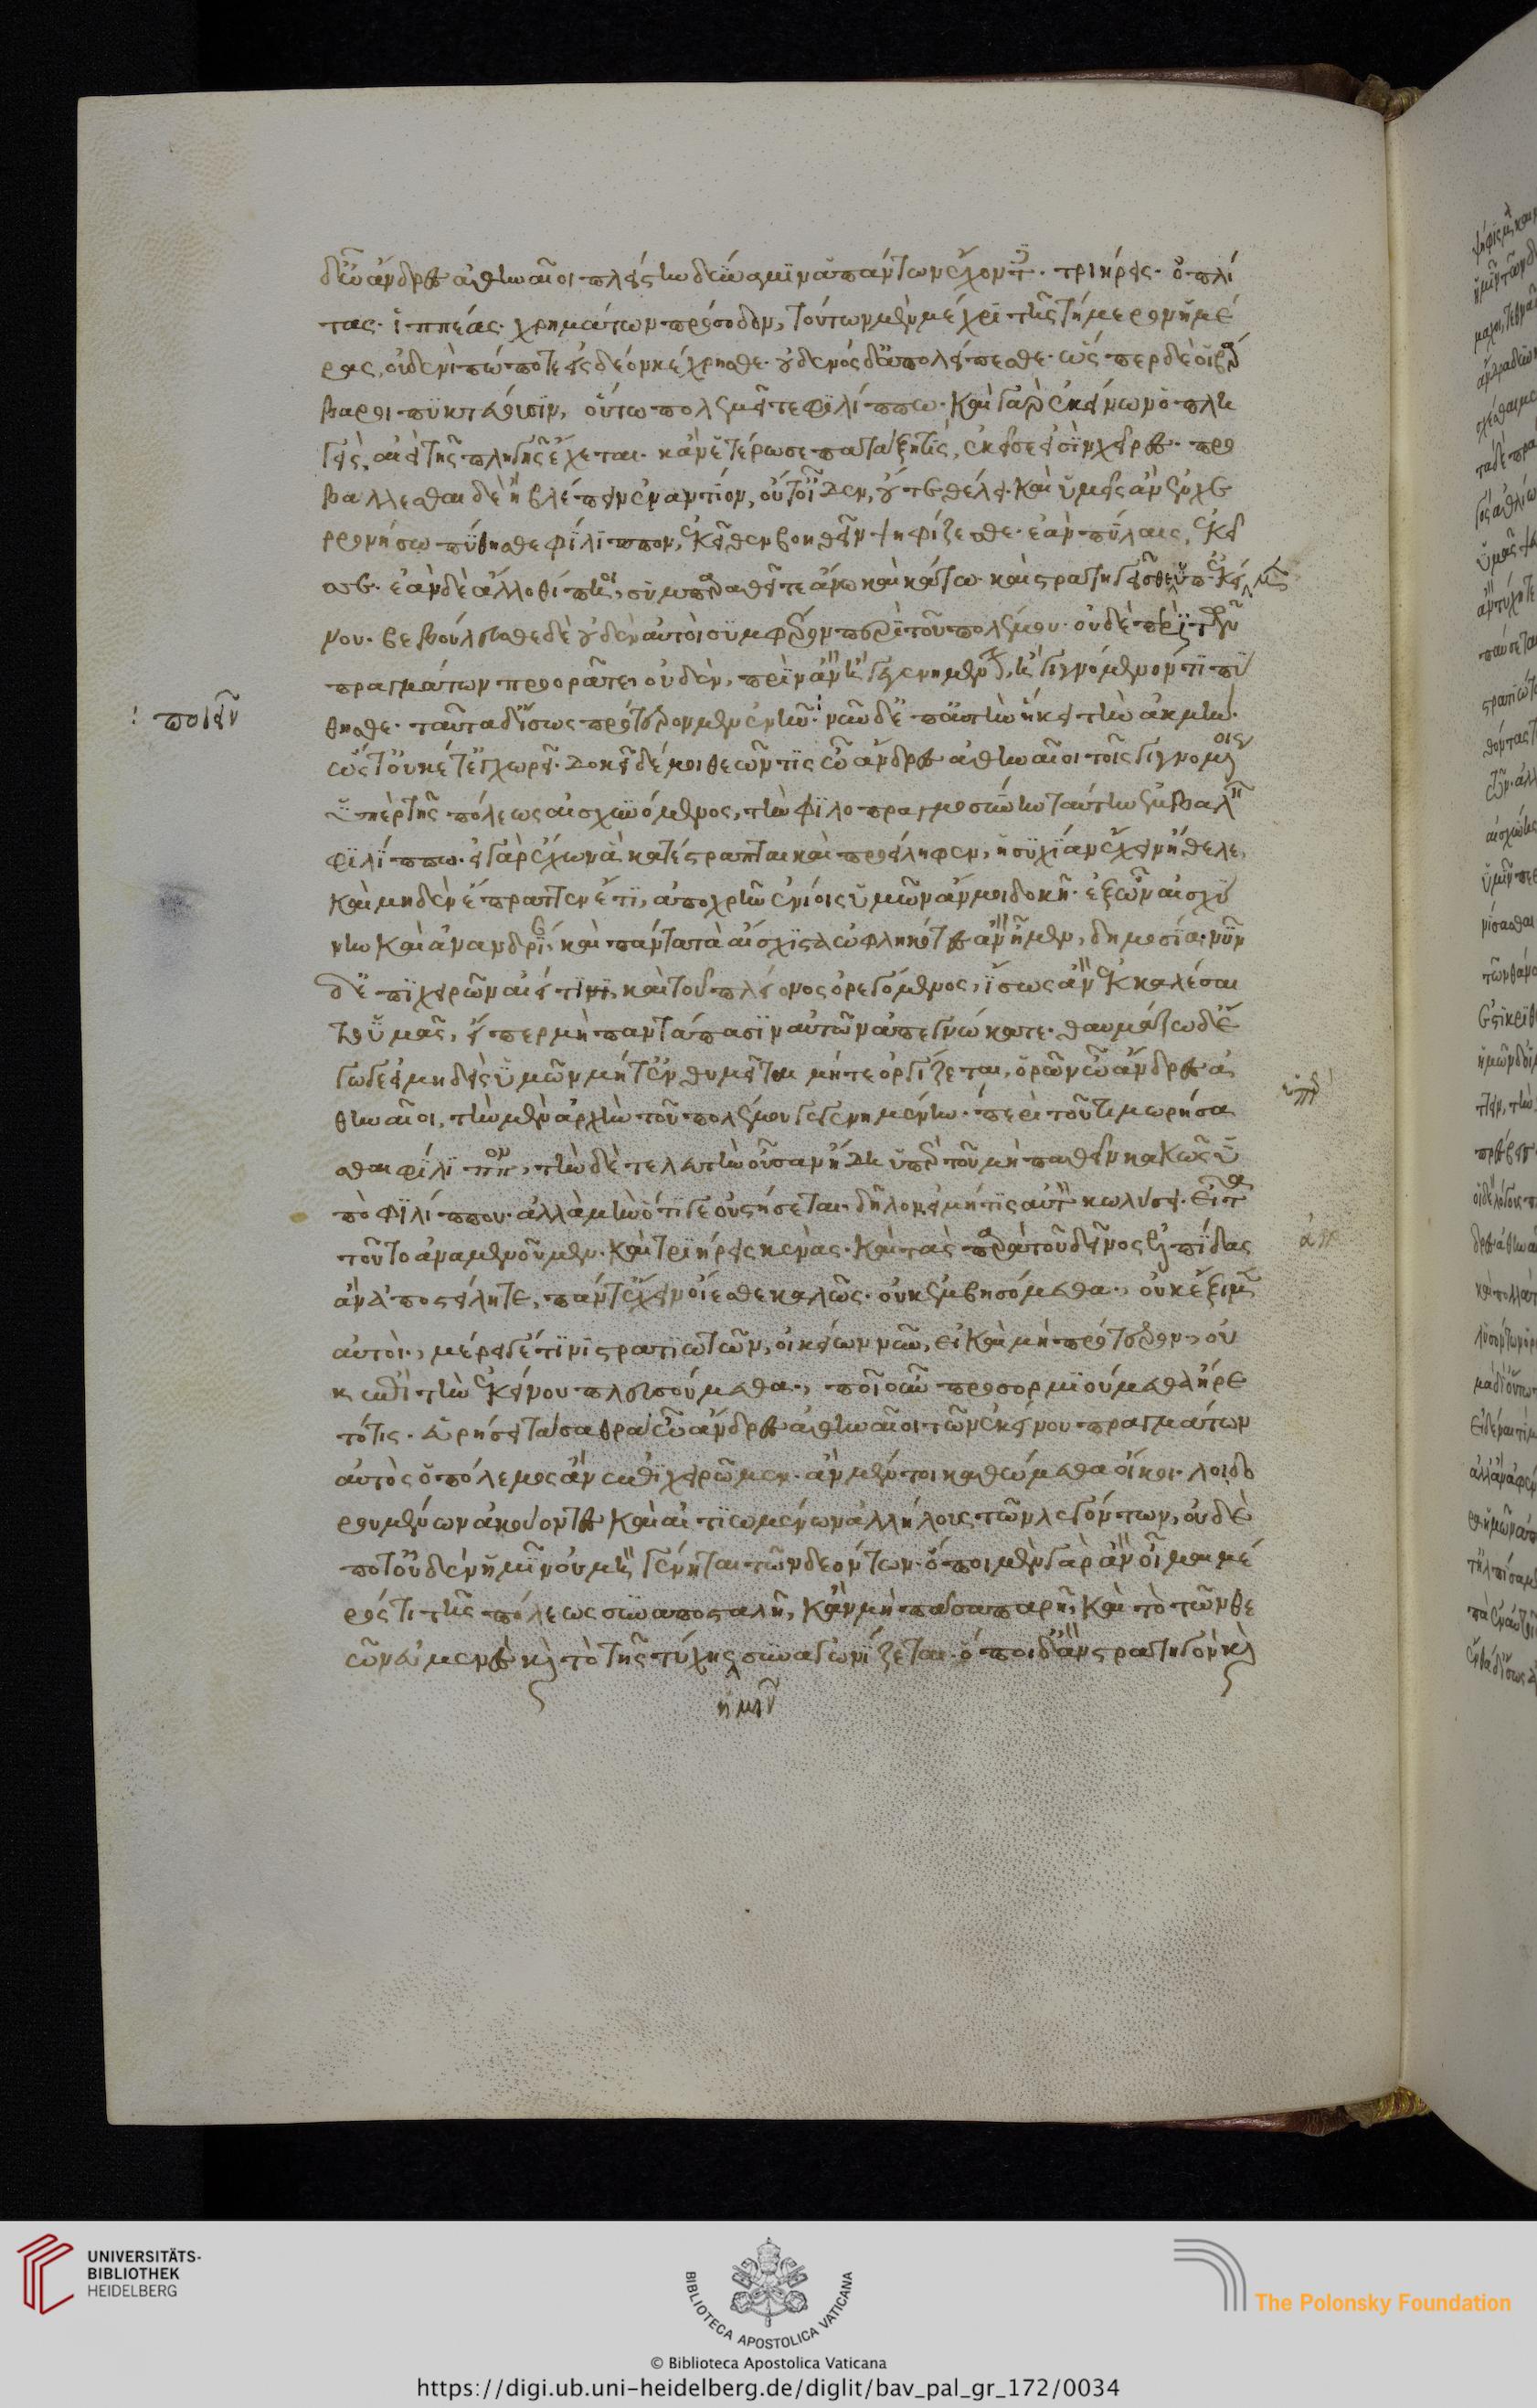 δ' ὦ ἄνδρες ἀθηναῖοι πλείστην δύναμιν ἁπάντων ἔχοντες· τριήρεις· ὁπλί
τας· ἱππέας· χρημάτων πρόσοδον, τούτων μὲν μέχρι τῆς τήμερον ἡμέ
ρας, οὐδενὶ πώποτε εἰς δέον κέχρησθε· οὐδενὸς δ' ἀπολείπεσθε· ὥσπερ δὲ οἱ βάρ
βαροι πυκτεύουσιν, οὕτω πολεμεῖτε φιλίππω· καὶ γὰρ ἐκείνων ὁ πλη
γεὶς, αἰεὶ τῆς πληγῆς ἔχεται· κἂν ἑτέρωσε πατάξῃ τίς, ἐκεῖσε εἰσὶν χεῖρες· προ
βάλλεσθαι δὲ ἢ βλέπειν ἐναντίον, οὔτ' οἶδεν, οὔτ' ἐθέλει· καὶ ὑμεῖς ἂν ἐν χε
ρρονήσω πύθησθε φίλιππον, ἐκεῖσθεν βοηθεῖν ψηφίζεσθε· ἐὰν πύλαις, ἐκεῖ
σε· ἐὰν δὲ ἄλλοθί που, συμπαραθεῖτε ἄνω καὶ κάτω· καὶ στρατηγεῖσθε ὑπ' ἐκεί
νου· βεβούλευσθε δὲ οὐδὲν αὐτοὶ συμφέρον περὶ τοῦ πολέμου· οὐδὲ πρὸ τῶν
πραγμάτων προορᾶτε οὐδὲν, πρὶν ἂν ἢ γεγενημένον, ἢ γιγνόμενόν τι πύ
θησθε· ταῦτα δ' ἴσως πρότερον μὲν ἐνῆν· νῦν δ' ἐπ' αὐτὴν ἥκει τὴν ἀκμήν·
ὥστ' οὐκέτ' ἐγχωρεῖ· δοκεῖ δέ μοι θεῶν τὶς ὦ ἄνδρες ἀθηναῖοι τοῖς γιγνομένοις
ὑπὲρ τῆς πόλεως αἰσχυνόμενος, τὴν φιλοπραγμοσύνην ταύτην ἐμβαλεῖν
φιλίππω· εἰ γὰρ ἔχων ἃ κατέστραπται καὶ προείληφεν, ἡσυχίαν ἔχειν ἤθελε,
καὶ μηδὲν ἔπραττεν ἔτι, ἀποχρῆν ἐνίοις ὑμῶν ἄν μοι δοκῆ· ἐξ ὧν αἰσχύ
νην καὶ ἀνανδρίαν καὶ πάντα τὰ αἴσχιστα ὠφληκότες ἂν ἦμεν, δημοσία· νῦν
δ' ἐπιχειρῶν αἰεί τινι, καὶ τοῦ πλείονος ὀρεγόμενος, ἴσως ἂν ἐκκαλέσαι
θ' ὑμᾶς, εἴπερ μὴ παντάπασιν αὑτῶν ἀπεγνώκατε· θαυμάζω δ' ἔ
γωγε εἰ μηδεὶς ὑμῶν μήτ' ἐνθυμεῖται μήτε ὀργίζεται, ὁρῶν ὦ ἄνδρες ἀ
θηναῖοι, τὴν μὲν ἀρχὴν τοῦ πολέμου γεγενημένην· περὶ τοῦ τιμωρήσα
σθαι φίλιππον, τὴν δὲ τελευτὴν οὖσαν ἤδη ὑπὲρ τοῦ μὴ παθεῖν κακῶς ὑ
πὸ φιλίππου· ἀλλὰ μὴν ὅτι γε οὐ στήσεται, δῆλον εἰ μή τις αὐτὸν κωλύσει· εἶτα
τοῦτο ἀναμενοῦμεν· καὶ τριήρεις κενὰς· καὶ τὰς παρὰ τοῦ δεῖνος ἐλπίδας
ἂν ἀποστείλητε, πάντ' ἔχειν οἴεσθε καλῶς· οὐκ ἐμβησόμεθα, οὐκ ἔξιμεν
αὐτοὶ, μέρει γέ τινι στρατιωτῶν, οἰκείων νῦν, εἰ καὶ μὴ πρότερον, οὐ
κ ἐπὶ τὴν ἐκείνου πλευσούμεθα, ποῖ οὖν προσορμιούμεθα ἤρε
τό τις· εὑρήσει τὰ σαθρὰ ὦ ἄνδρες ἀθηναῖοι τῶν ἐκείνου πραγμάτων
αὐτὸς ὁ πόλεμος ἂν ἐπιχειρῶμεν· ἂν μέντοι καθώμεθα οἴκοι· λοιδο
ρουμένων ἀκούοντες καὶ αἰτιωμένων ἀλλήλους τῶν λεγόντων, οὐδὲ
ποτ' οὐδὲν ἡμῖν οὐ μὴ γένηται τῶν δεόντων· ὅποι μὲν γὰρ ἂν οἶμαι μέ
ρός τι τῆς πόλεως συναποσταλῆ, κἂν μὴ πᾶσα παρῆ, καὶ τὸ τῶν θε
ῶν εὐμενὲς καὶ τὸ τῆς τύχης συναγωνίζεται· ὅποι δ' ἂν στρατηγὸν καὶ
ἡμῖν
ποιεῖν
UNIVERSITÄTS-
BIBLIOTHEK
HEIDELBERG
BIBLIOTECA APOSTOLICA VATICANA
The Polonsky Foundation
© Biblioteca Apostolica Vaticana
https://digi.ub.uni-heidelberg.de/diglit/bav_pal_gr_172/0034